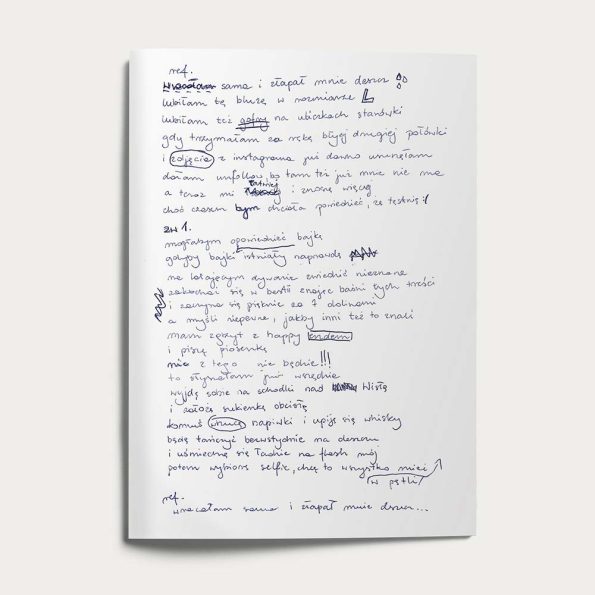 ref.
wracałam sama i złapał mnie deszcz
lubiłam tę bluzę w rozmiarze L
lubiłam też gofry na uliczkach starówki
gdy trzymałam za rękę byłej drugiej połówki
i zdjęcia z instagrama już dawno usunęłam
dałam unfollow, bo tam też już mnie nie ma
a teraz mi łatwiej i znoszę więcej
choć czasem bym chciała powiedzieć, że tęsknię :(
zw 1.
mogłabym opowiedzieć bajkę
gdyby bajki istniały naprawdę
na latającym dywanie zwiedzić nieznane
zakochać się w bestii znając baśni tych treści
i zaczyna się pięknie za 7 dolinami
a myśli niepewne, jakby inni też to znali
mam zgrzyt z happy endem
i piszę piosenkę
nic z tego nie będzie!!!
to słyszałam już wszędzie
wyjdę sobie na schodki nad Wisłę
i założę sukienkę obcisłą
komuś wrzucę napiwki i upiję się whisky
będę tańczyć bezwstydnie na deszczu
i uśmiechnę się ładnie na flesh mój
potem wybiorę selfie, chcę to wszystko mieć
w pętli
ref.
wracałam sama i złapał mnie deszcz...